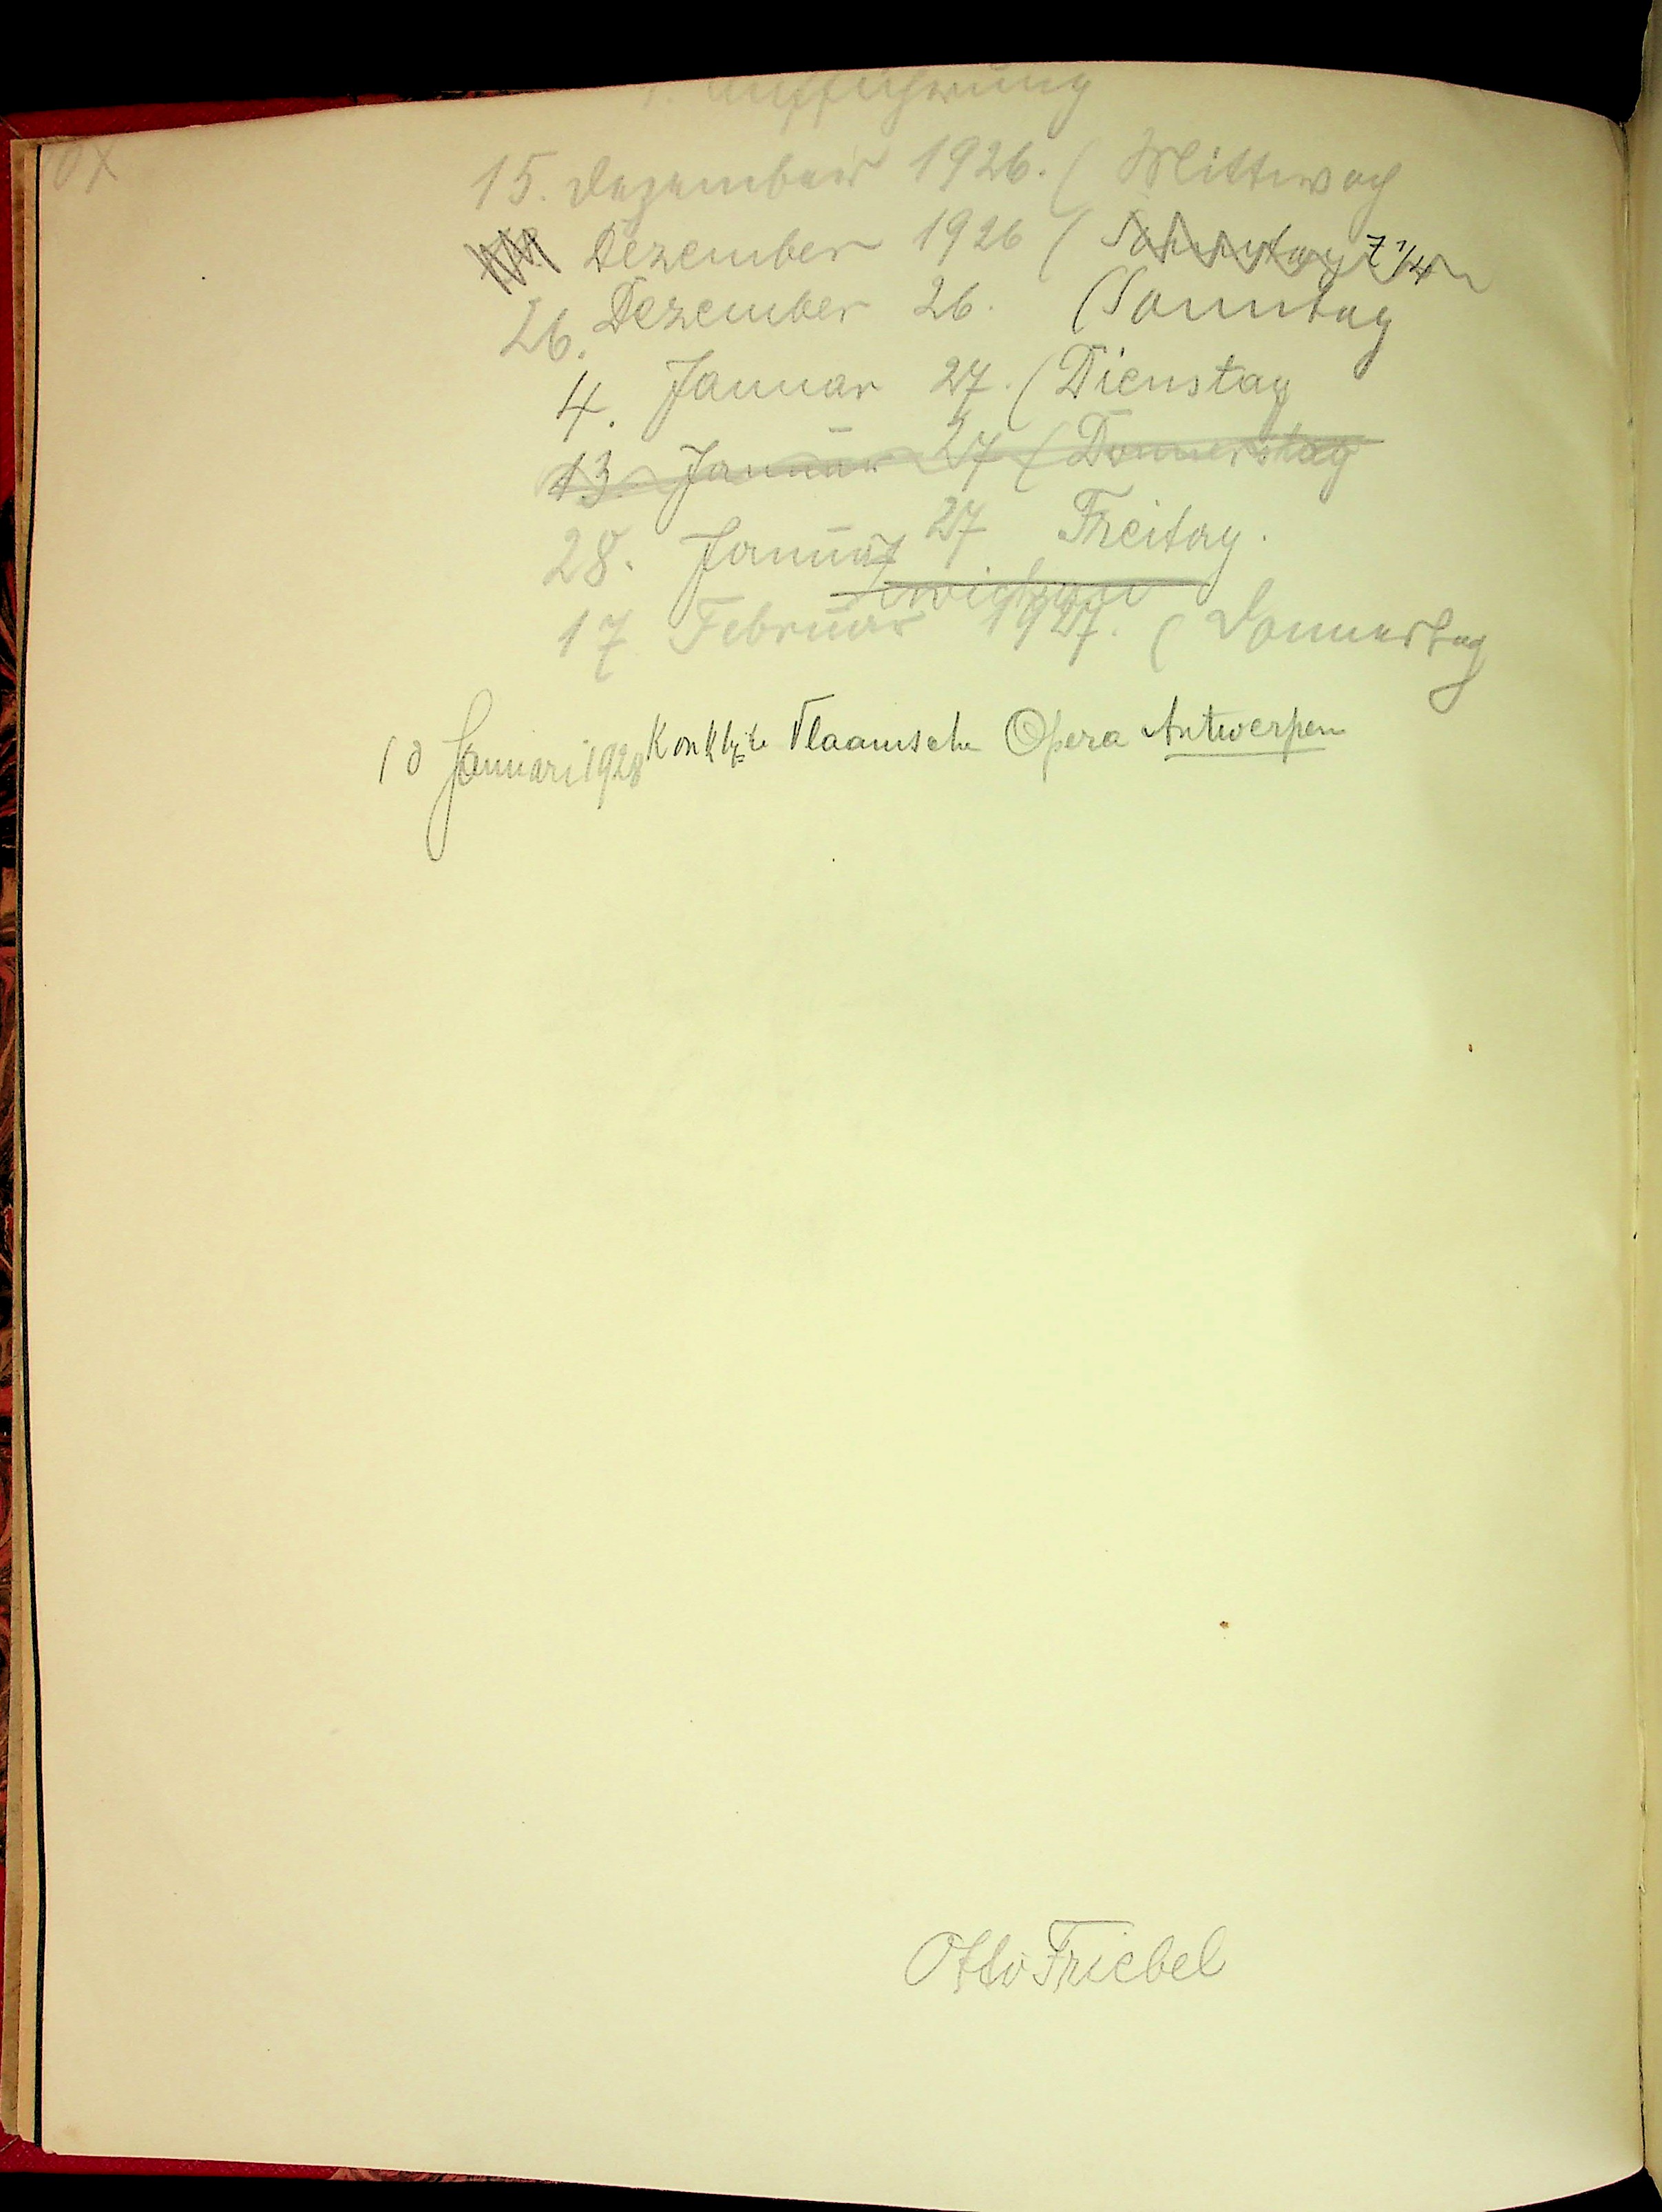 1. Aufführung
15. Dezember 1926. ( Mittwoch
Dezember 1926 ( Sonntag 7 1/4
26. Dezember 26. (Sonntag
4. Januar 27. (Dienstag
13. Januar 27 (Donnerstag
28. Januar 27 Freitag.
17 Februar 1927. ( Donnerstag
10 Januari 1928 Vlaamsche Opera Antwerpen
Otto Friebel